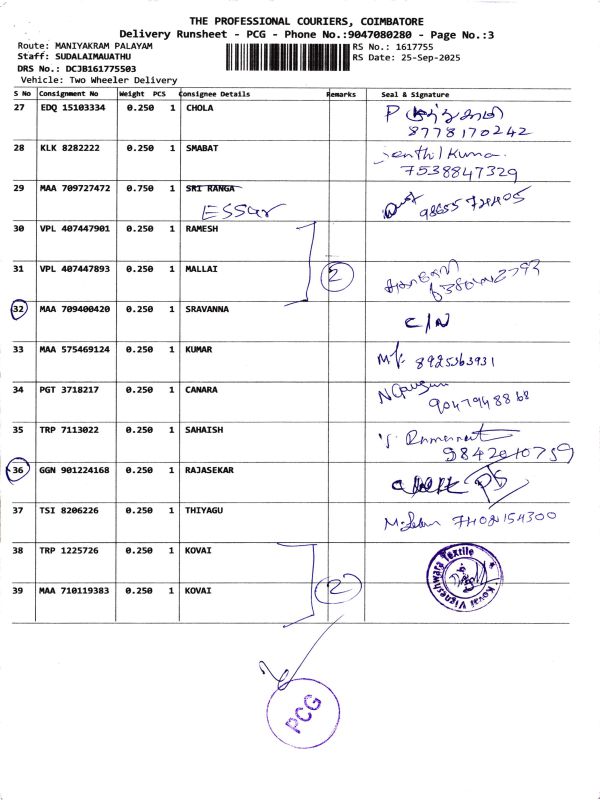 THE PROFESSIONAL COURIERS, COIMBATORE
Delivery Runsheet - PCG - Phone No.:9047080280 - Page No.:3
Route: MANIYAKRAM PALAYAM RS No.: 1617755
Staff: SUDALAIMAUATHU RS Date: 25-Sep-2025
DRS No.: DCJB161775503
Vehicle: Two Wheeler Delivery
S No Consignment No Weight PCS Consignee Details Remarks Seal & Signature
27 EDQ 15103334 0.250 1 CHOLA P
8778170242
28 KLK 8282222 0.250 1 SMABAT Senthil Kumar
7538847329
29 MAA 709727472 0.750 1 SRI RANGA
ESSar
30 VPL 407447901 0.250 1 RAMESH
31 VPL 407447893 0.250 1 MALLAI 2
32 MAA 709400420 0.250 1 SRAVANNA C/N
33 MAA 575469124 0.250 1 KUMAR 8925363931
34 PGT 3718217 0.250 1 CANARA
9047948868
35 TRP 7113022 0.250 1 SAHAISH
9842010759
36 GGN 901224168 0.250 1 RAJASEKAR
37 TSI 8206226 0.250 1 THIYAGU 7402154300
38 TRP 1225726 0.250 1 KOVAI
39 MAA 710119383 0.250 1 KOVAI 2
Kovai Vigneshwara Textile
PCG